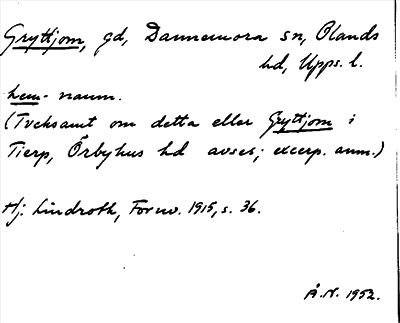 Gryttjom, gd, Dannemora sn, Olands
hd, Upps. l.
hem- namn.
(Tveksamt om detta eller Gryttjom i
Tierp, Örbyhus hd avses; excerp. anm.)
Hj. Lindroth, Fornv. 1915, s. 36.
Å.N. 1952.